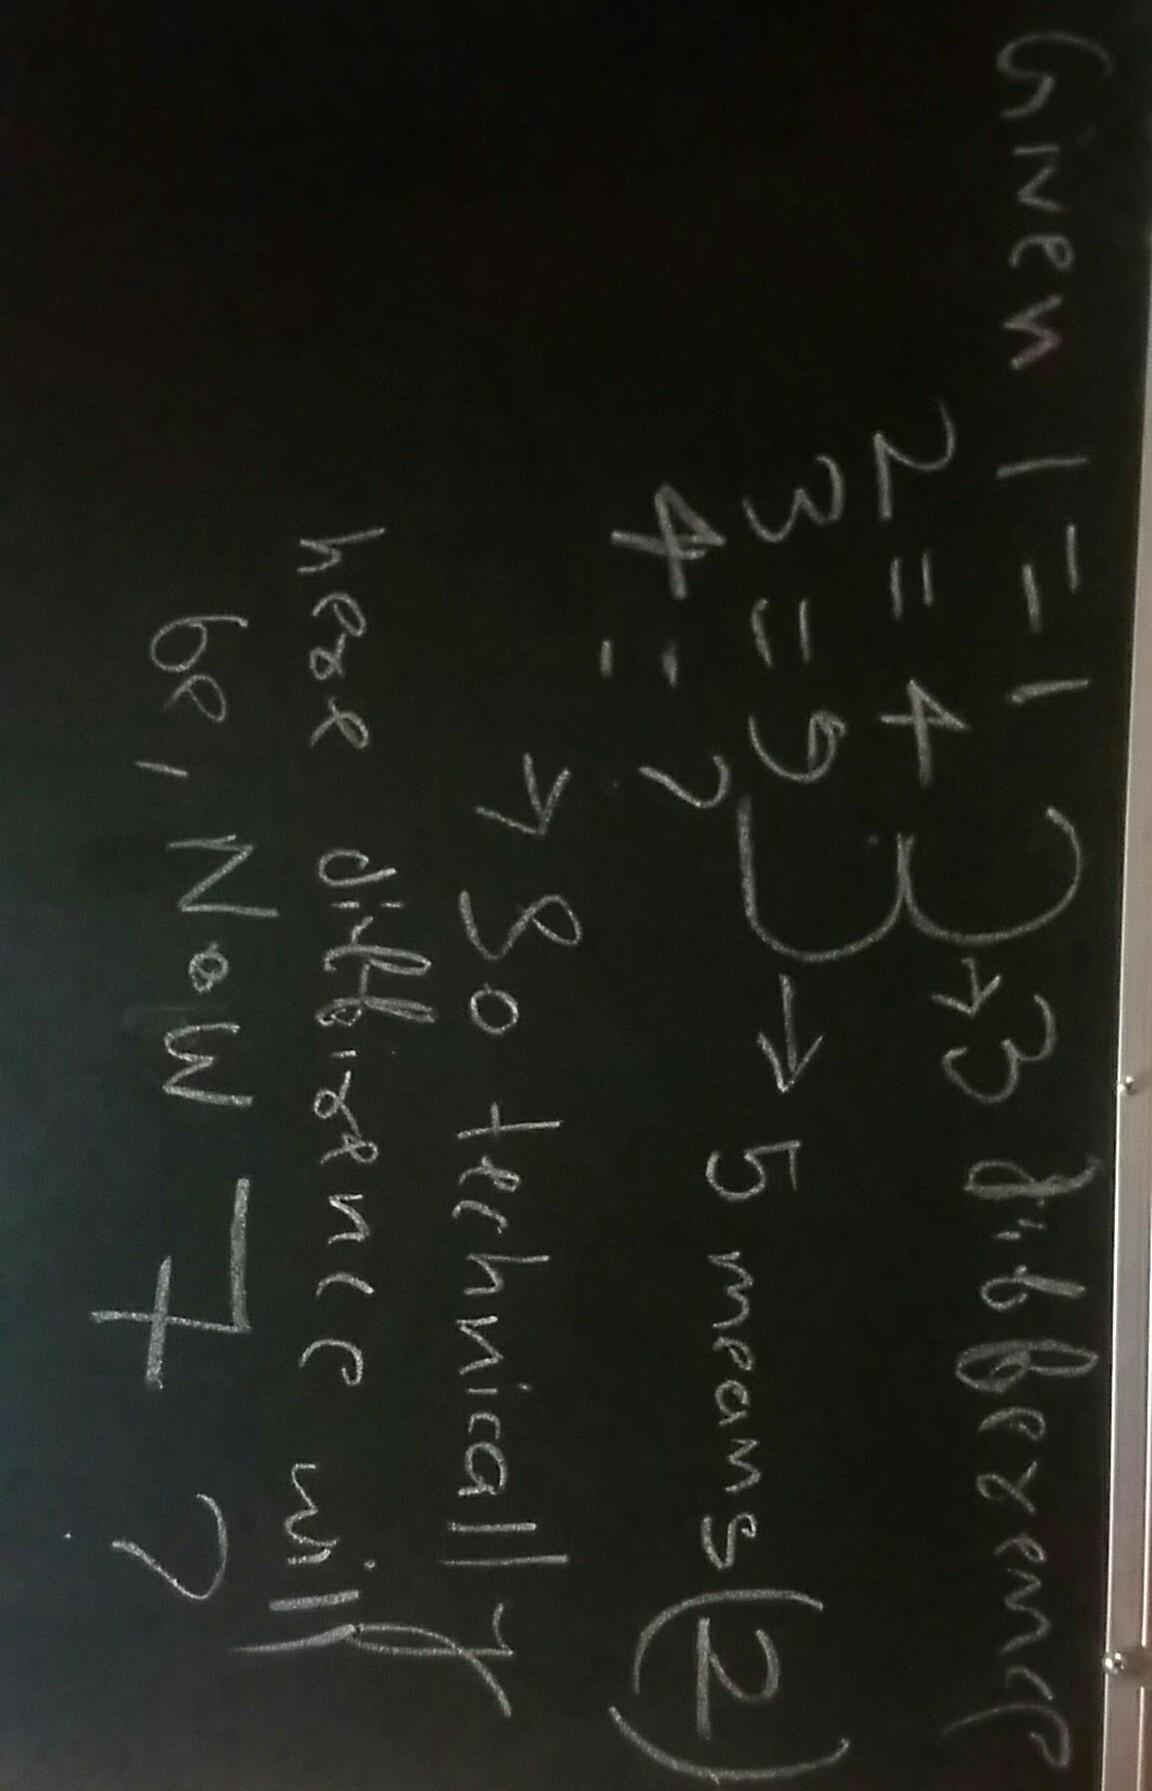 Given 1 = 1
2 = 4 → 3 difference
3 = 9 → 5 means (2)
4 = ?
→ So technically
here difference will
be, Now 7 ?